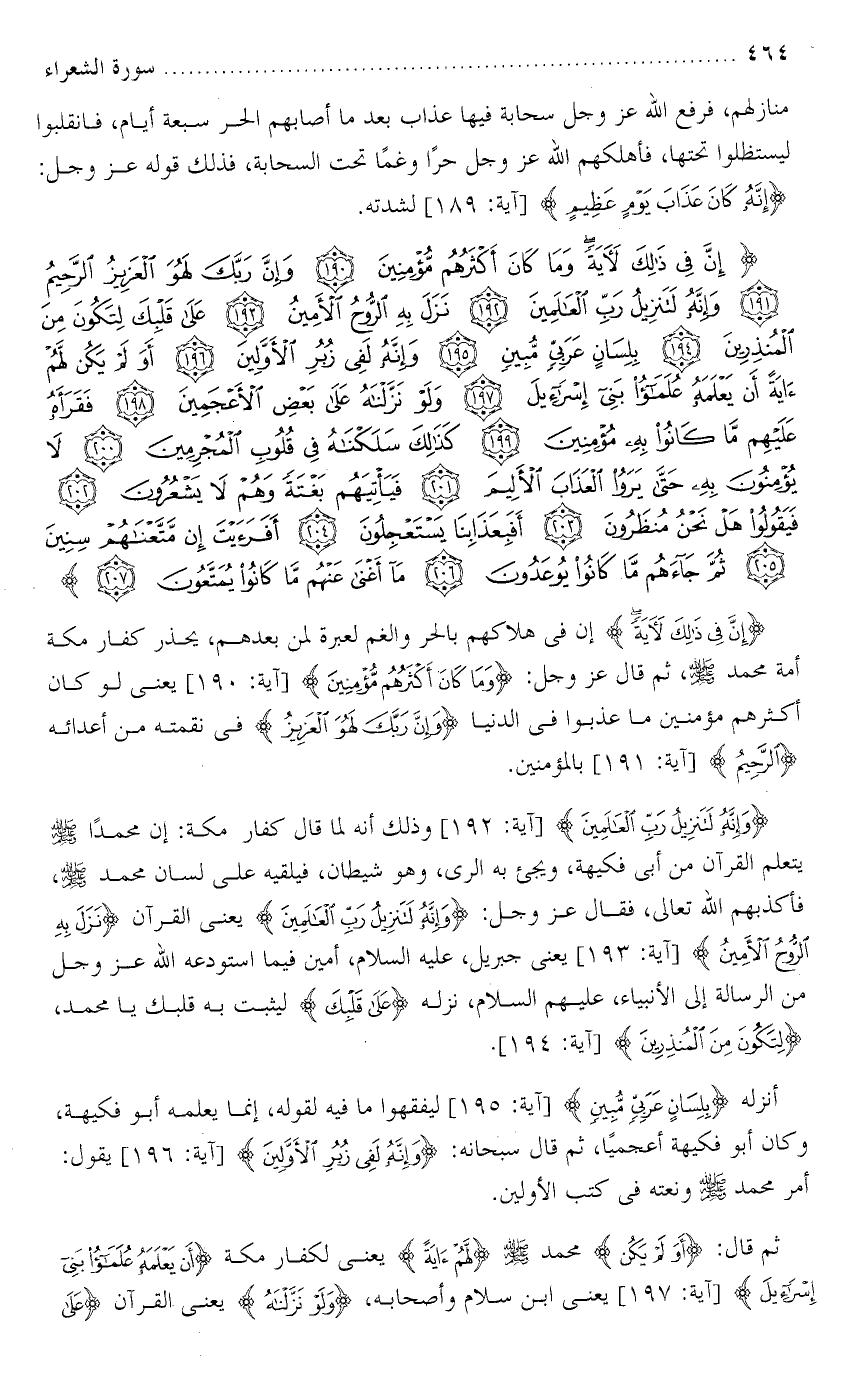 ٤٦٤ ........................................................................ سورة الشعراء
منازلهم، فرفع الله عز وجل سحابة فيها عذاب بعد ما أصابهم الحر سبعة أيام، فانقلبوا
ليستظلوا تحتها، فأهلكهم الله عز وجل حرًا وغمًا تحت السحابة، فذلك قوله عز وجل:
﴿إِنَّهُ كَانَ عَذَابَ يَوْمٍ عَظِيمٍ﴾ [آية: ١٨٩] لشدته.
﴿إِنَّ فِي ذَٰلِكَ لَآيَةً ۖ وَمَا كَانَ أَكْثَرُهُم مُّؤْمِنِينَ ١٩٠ وَإِنَّ رَبَّكَ لَهُوَ ٱلْعَزِيزُ ٱلرَّحِيمُ
١٩١ وَإِنَّهُ لَتَنزِيلُ رَبِّ ٱلْعَالَمِينَ ١٩٢ نَزَلَ بِهِ ٱلرُّوحُ ٱلْأَمِينُ ١٩٣ عَلَىٰ قَلْبِكَ لِتَكُونَ مِنَ
ٱلْمُنذِرِينَ ١٩٤ بِلِسَانٍ عَرَبِيٍّ مُّبِينٍ ١٩٥ وَإِنَّهُ لَفِي زُبُرِ ٱلْأَوَّلِينَ ١٩٦ أَوَ لَمْ يَكُن لَّهُمْ
ءَايَةً أَن يَعْلَمَهُ عُلَمَٰٓؤُا۟ بَنِىٓ إِسْرَٰٓءِيلَ ١٩٧ وَلَوْ نَزَّلْنَاهُ عَلَىٰ بَعْضِ ٱلْأَعْجَمِينَ ١٩٨ فَقَرَأَهُ
عَلَيْهِم مَّا كَانُوا۟ بِهِۦ مُؤْمِنِينَ ١٩٩ كَذَٰلِكَ سَلَكْنَاهُ فِي قُلُوبِ ٱلْمُجْرِمِينَ ٢٠٠ لَا
يُؤْمِنُونَ بِهِۦ حَتَّىٰ يَرَوُا۟ ٱلْعَذَابَ ٱلْأَلِيمَ ٢٠١ فَيَأْتِيَهُم بَغْتَةً وَهُمْ لَا يَشْعُرُونَ ٢٠٢
فَيَقُولُوا۟ هَلْ نَحْنُ مُنظَرُونَ ٢٠٣ أَفَبِعَذَابِنَا يَسْتَعْجِلُونَ ٢٠٤ أَفَرَءَيْتَ إِن مَّتَّعْنَاهُمْ سِنِينَ
٢٠٥ ثُمَّ جَاءَهُم مَّا كَانُوا۟ يُوعَدُونَ ٢٠٦ مَا أَغْنَىٰ عَنْهُم مَّا كَانُوا۟ يُمَتَّعُونَ ٢٠٧ ﴾
﴿إِنَّ فِي ذَٰلِكَ لَآيَةً ۖ﴾ إن فى هلاكهم بالحر والغم لعبرة لمن بعدهم، يحذر كفار مكة
أمة محمد ﷺ، ثم قال عز وجل: ﴿وَمَا كَانَ أَكْثَرُهُم مُّؤْمِنِينَ﴾ [آية: ١٩٠] يعنى لو كان
أكثرهم مؤمنين ما عذبوا فى الدنيا ﴿وَإِنَّ رَبَّكَ لَهُوَ ٱلْعَزِيزُ﴾ فى نقمته من أعدائه
﴿ٱلرَّحِيمُ﴾ [آية: ١٩١] بالمؤمنين.
﴿وَإِنَّهُ لَتَنزِيلُ رَبِّ ٱلْعَالَمِينَ﴾ [آية: ١٩٢] وذلك أنه لما قال كفار مكة: إن محمدًا ﷺ
يتعلم القرآن من أبى فكيهة، ويجئ به الرى، وهو شيطان، فيلقيه على لسان محمد ﷺ،
فأكذبهم الله تعالى، فقال عز وجل: ﴿وَإِنَّهُ لَتَنزِيلُ رَبِّ ٱلْعَالَمِينَ﴾ يعنى القرآن ﴿نَزَلَ بِهِ
ٱلرُّوحُ ٱلْأَمِينُ﴾ [آية: ١٩٣] يعنى جبريل، عليه السلام، أمين فيما استودعه الله عز وجل
من الرسالة إلى الأنبياء، عليهم السلام، نزله ﴿عَلَىٰ قَلْبِكَ﴾ ليثبت به قلبك يا محمد،
﴿لِتَكُونَ مِنَ ٱلْمُنذِرِينَ﴾ [آية: ١٩٤].
أنزله ﴿بِلِسَانٍ عَرَبِيٍّ مُّبِينٍ﴾ [آية: ١٩٥] ليفقهوا ما فيه لقوله، إنما يعلمه أبو فكيهة،
وكان أبو فكيهة أعجميًا، ثم قال سبحانه: ﴿وَإِنَّهُ لَفِي زُبُرِ ٱلْأَوَّلِينَ﴾ [آية: ١٩٦] يقول:
أمر محمد ﷺ ونعته فى كتب الأولين.
ثم قال: ﴿أَوَ لَمْ يَكُن﴾ محمد ﷺ ﴿لَّهُمْ ءَايَةً﴾ يعنى لكفار مكة ﴿أَن يَعْلَمَهُ عُلَمَٰٓؤُا۟ بَنِىٓ
إِسْرَٰٓءِيلَ﴾ [آية: ١٩٧] يعنى ابن سلام وأصحابه، ﴿وَلَوْ نَزَّلْنَاهُ﴾ يعنى القرآن ﴿عَلَىٰ